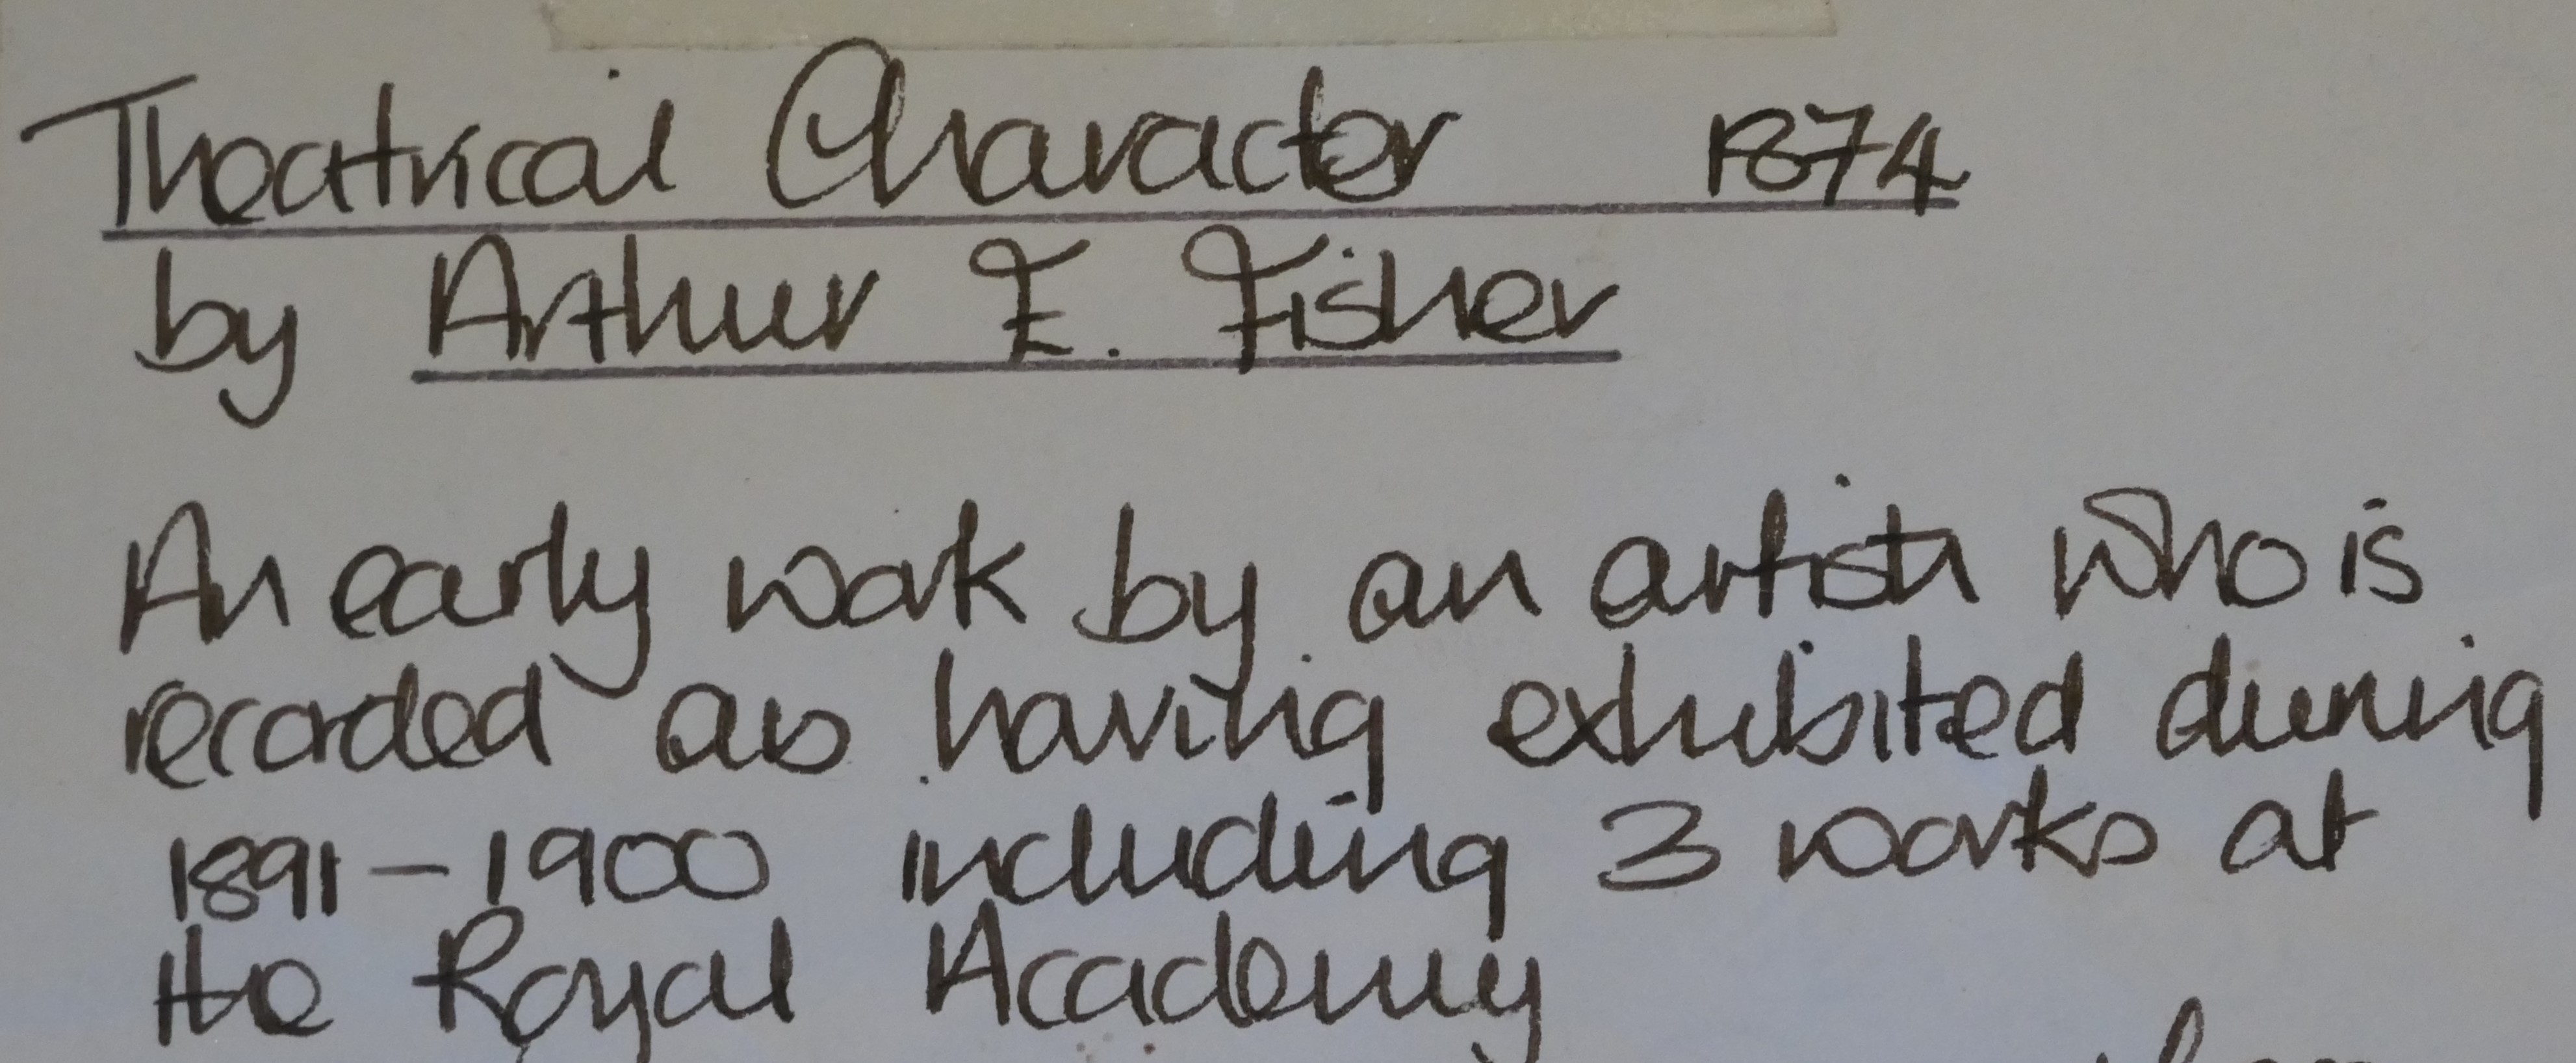 Theatrical Character 1874
by Arthur E. Fisher
An early work by an artist who is
recorded as having exhibited during
1891 – 1900 including 3 works at
the Royal Academy